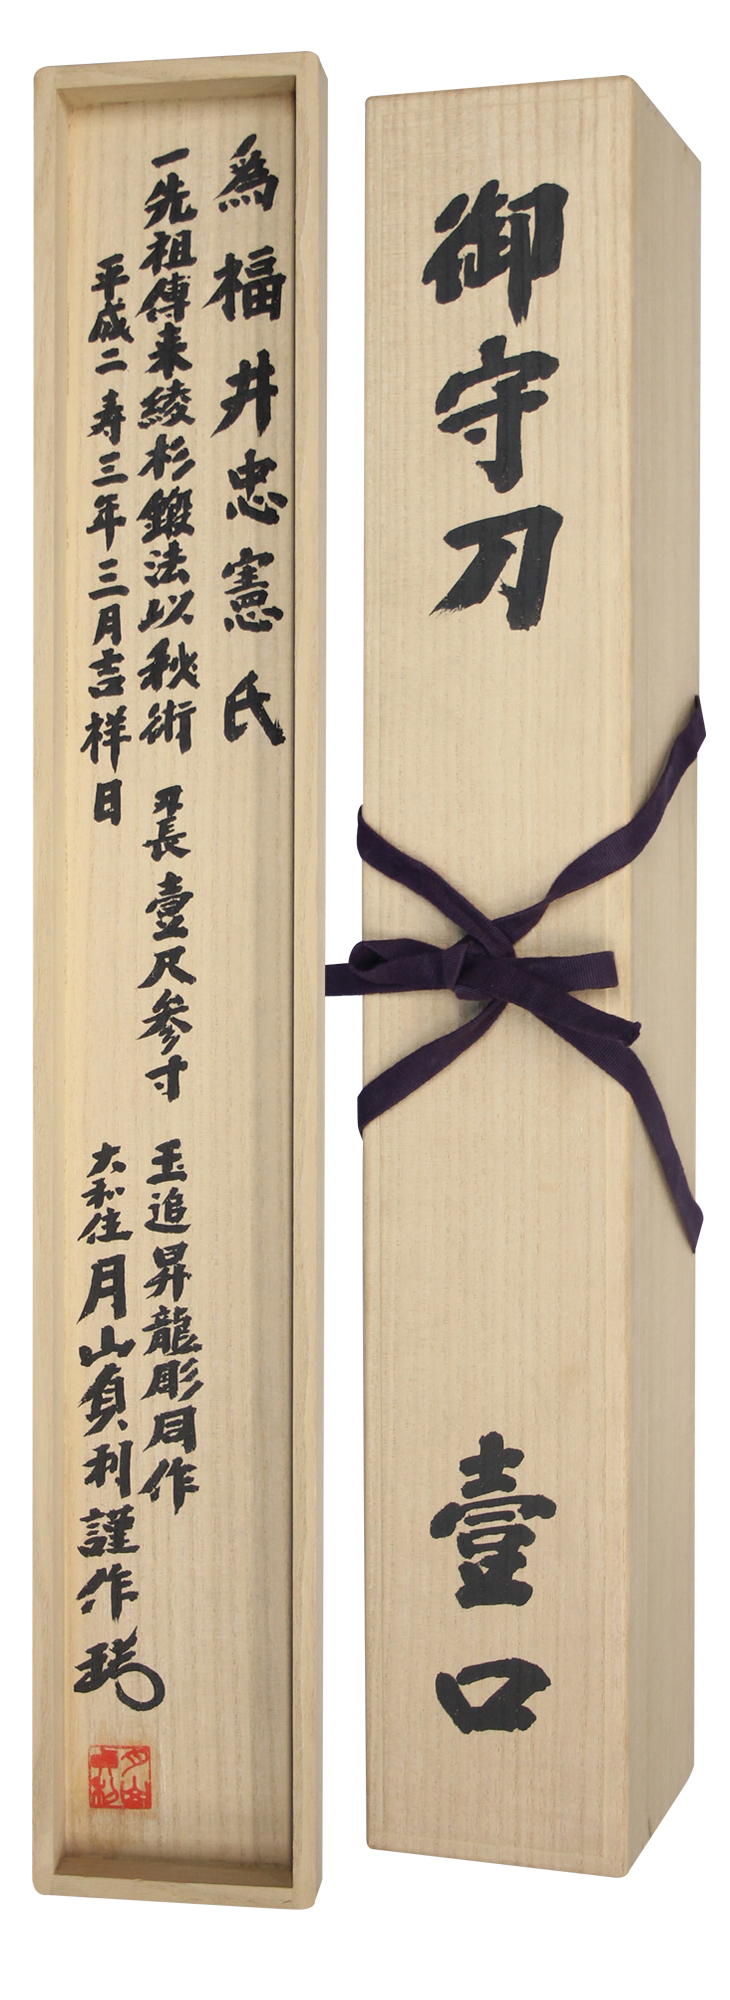 御守刀
壹口
為福井忠憲氏
一先祖傳来綾杉鍛法以秘術
刃長壹尺参寸
玉追昇龍彫同作
平成二寿三年三月吉祥日
大和住月山貞利謹作